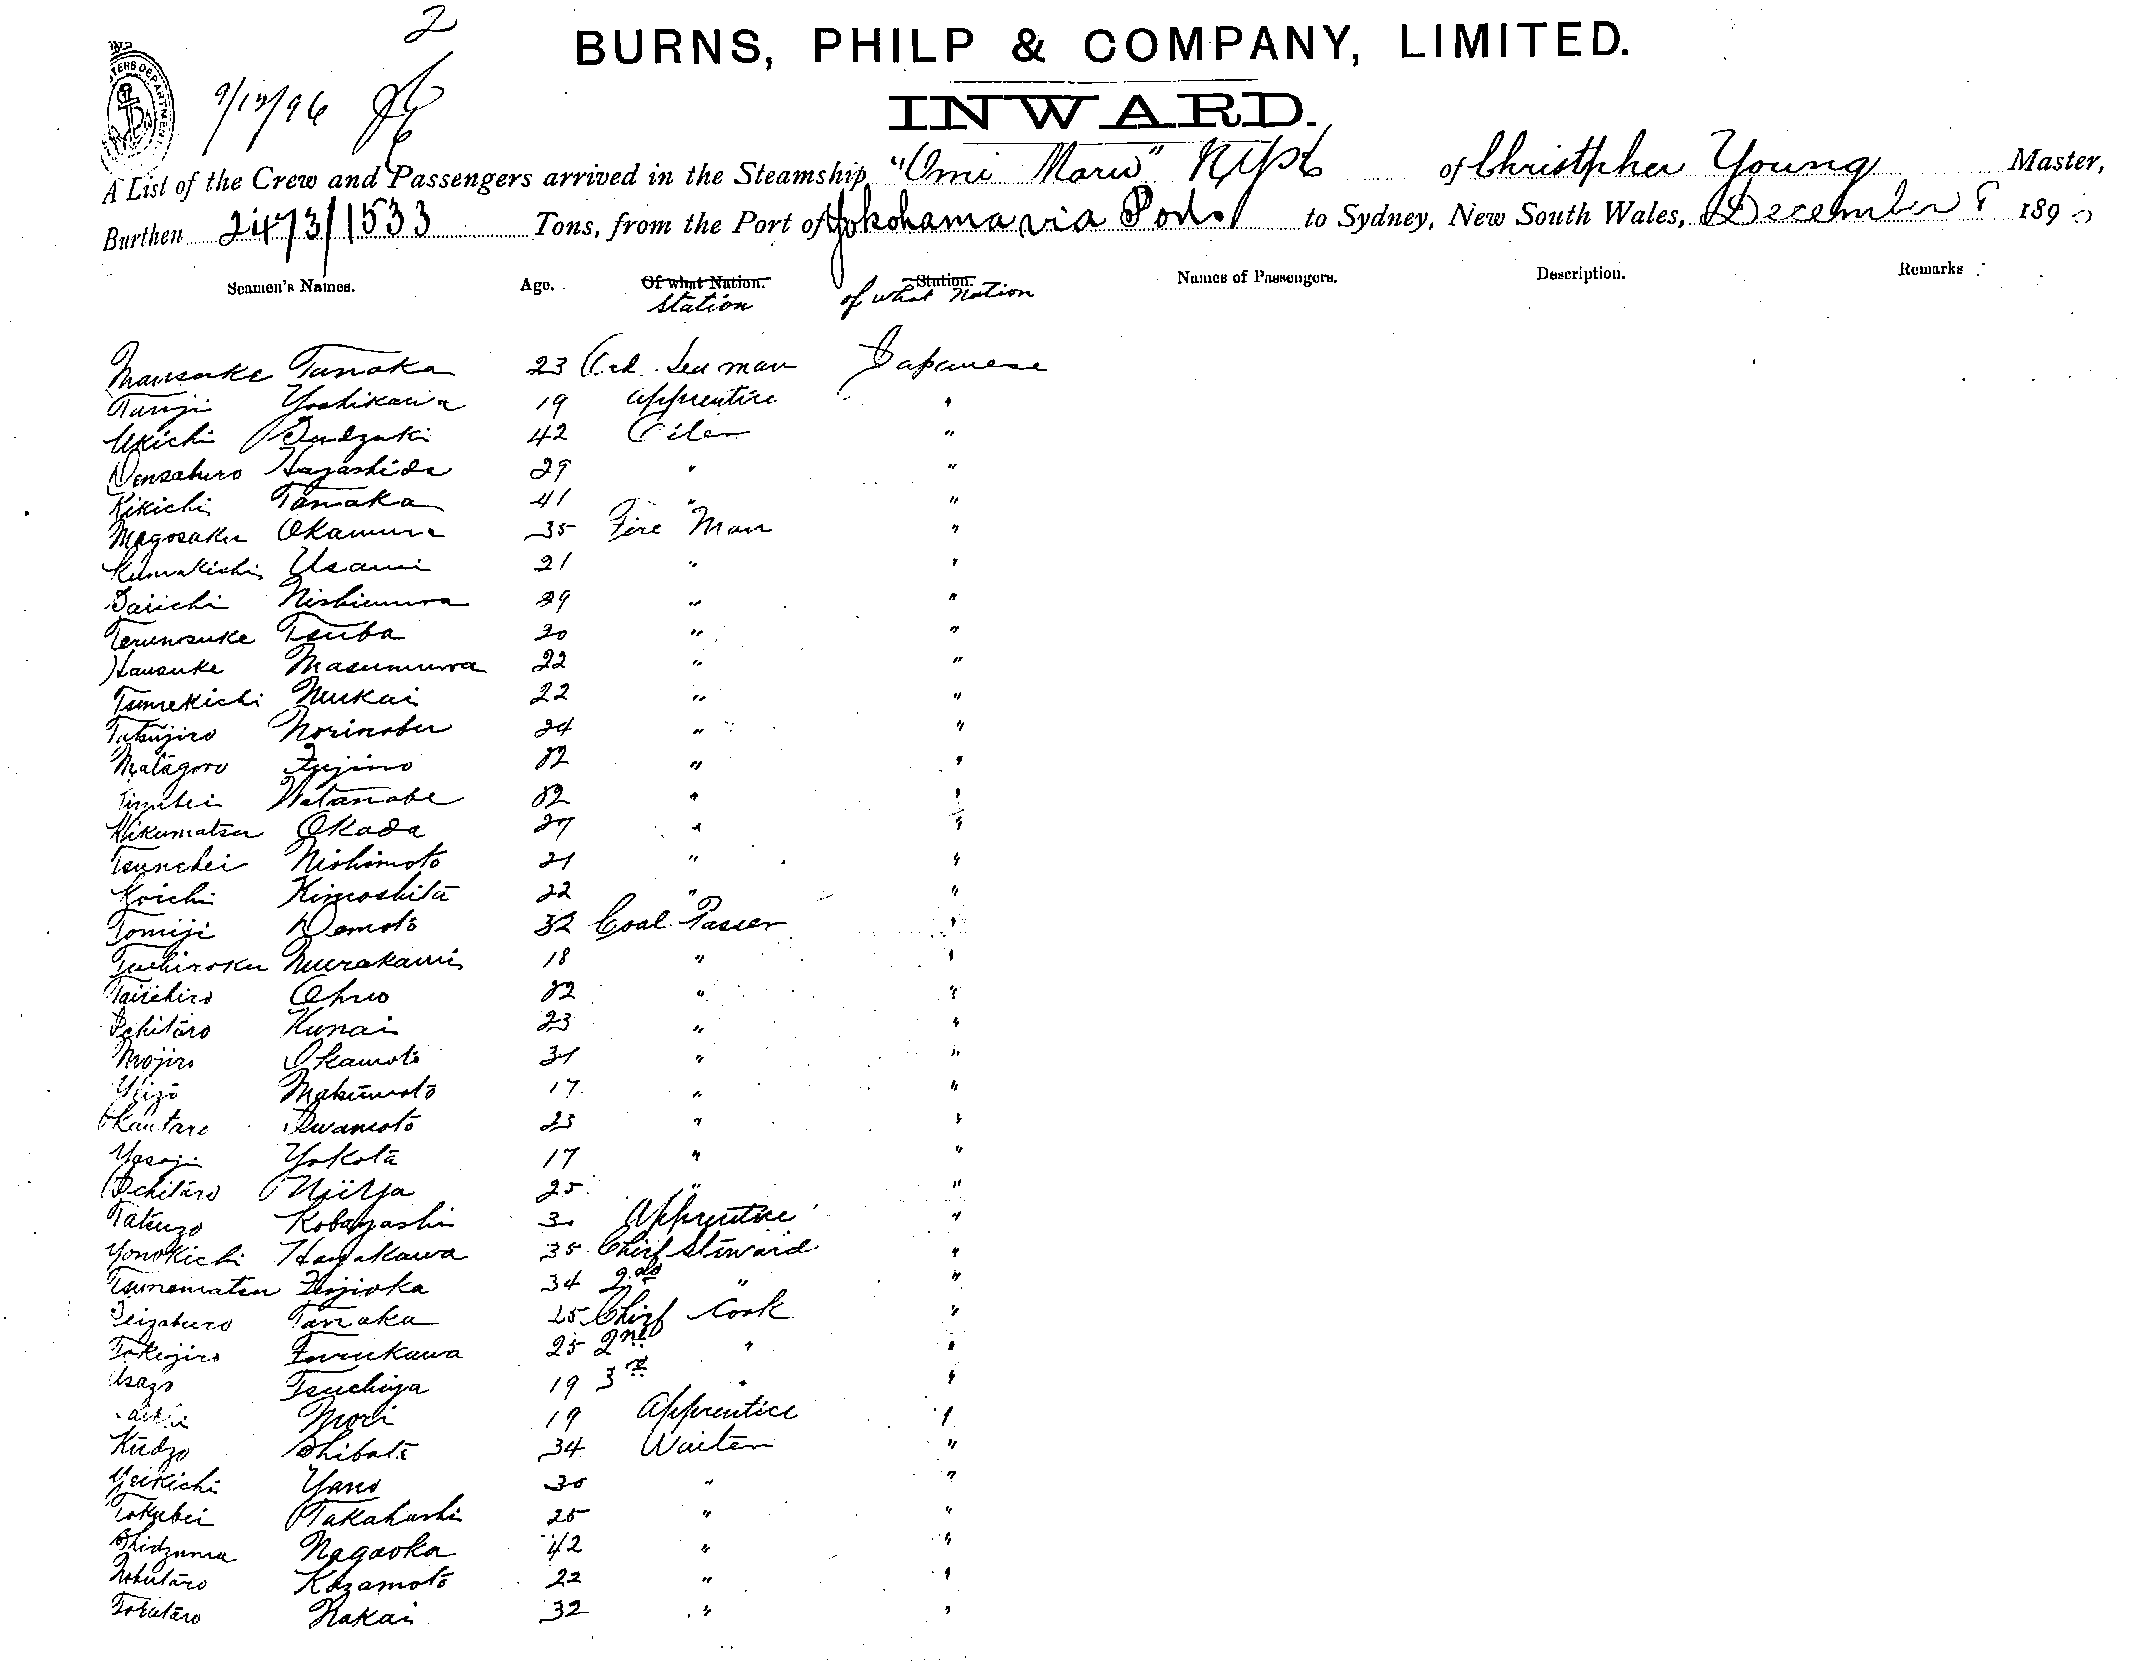 2
BURNS, PHILP & COMPANY, LIMITED.
9/12/96
INWARD.
A List of the Crew and Passengers arrived in the Steamship "Omi Maru" of Christpher Young Master,
Burthen 2473/1533 Tons, from the Port of Yokohama via Ports to Sydney, New South Wales, December 189
Seamen's Names. Age. Of what Nation. Station. Names of Passengers. Description. Remarks
Station of what Nation
Mansuke Tanaka 23 Ord. Seaman Japanese
Tanji Yoshikawa 19 Apprentice "
Ukichi Sudzuki 42 Oiler "
Densaburo Hayashida 29 " "
Kikichi Tanaka 41 " "
Magosaku Okamura 35 Fire Man "
Kumakichi Usami 21 " "
Saiichi Nishimura 29 " "
Terunosuke Tsuba 20 " "
Hansuke Masumura 22 " "
Tsunekichi Mukai 22 " "
Tatsujiro Norinobu 24 " "
Matagoro Fujino " "
Watanabe " "
Kikumatsu Okada 27 " "
Tsunehei Nishimoto 21 " "
Koichi Kinoshita 22 " "
Tomiji Demoto 32 Coal Passer "
Murakami 18 " "
Taiichiro Ohno " "
Ichitaro Kunai 23 " "
Mojiro Okamoto 31 " "
Yeizo Makumoto 17 " "
Kantaro Iwamoto 23 " "
Yasoji Yokota 17 " "
Ichitaro Niiya 25 " "
Tatsuzo Kobayashi Apprentice "
Yonokichi Hayakawa 35 Chief Steward "
Tsunematsu Fujioka 34 2nd " "
Seizaburo Tanaka 25 Chief Cook "
Tokujiro Furukawa 25 2nd " "
Usazo Tsuchiya 19 3rd " "
Mori 19 Apprentice "
Kudzo Shibata 34 Waiter "
Yeikichi Yano 30 " "
Tokubei Takahashi 25 " "
Shidzuma Nagaoka 42 " "
Nobutaro Kazamoto 22 " "
Tokutaro Nakai 32 " "